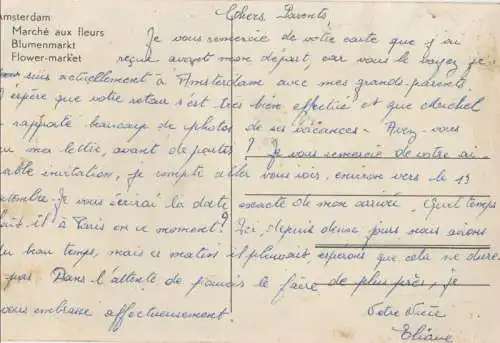 Amsterdam
Marché aux fleurs
Blumenmarkt
Flower-market
Chers Parents
Je vous remercie de votre carte que j'ai
reçue avant mon départ, car vous le voyez je
suis actuellement à Amsterdam avec mes grands-parents.
J'espère que votre retour s'est très bien effectué et que
a rapporté beaucoup de photos de ses vacances - Avez-vous
eu ma lettre, avant de partir ? Je vous remercie de votre ai-
mable invitation, je compte aller vous voir, environ vers le 13
septembre. Je vous écrirai la date exacte de mon arrivée. Quel temps
fait il à Paris en ce moment ? Ici, depuis deux jours nous avions
du beau temps, mais ce matin il pleuvait, espérons que cela ne dure
pas. Dans l'attente de pouvoir le faire de plus près, je
vous embrasse affectueusement.
Votre Nièce
Eliane